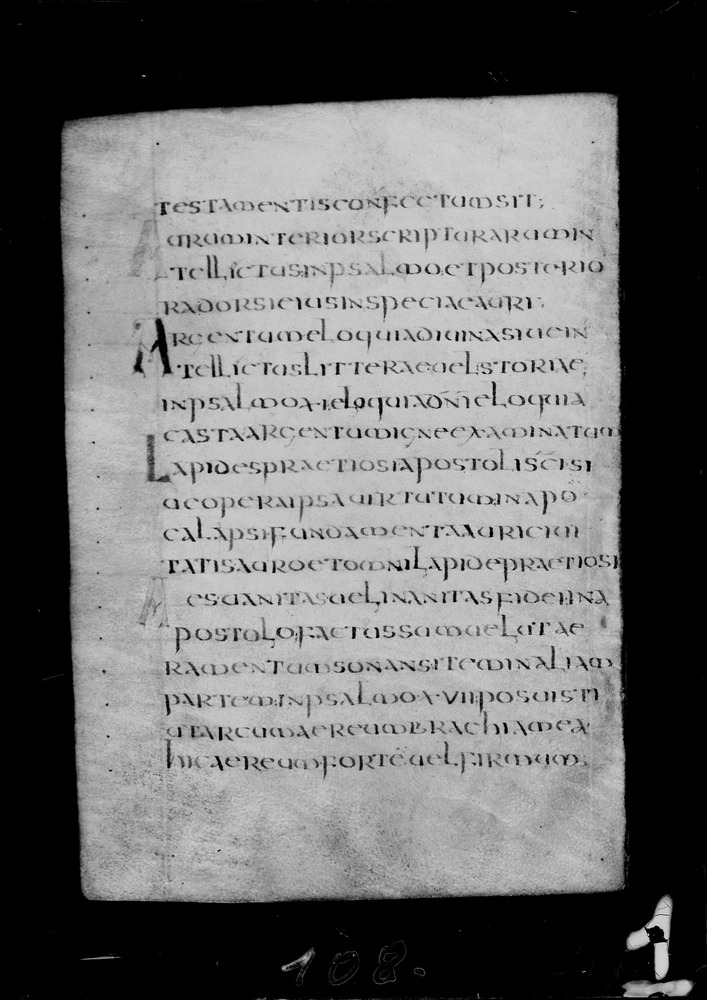 TESTAMENTIS CONFECTUM SIT;
AURUM INTERIOR SCRIPTURARUM IN
TELLICTUS IN PSALMO ET POSTERIO
RA DORSI EIUS IN SPECIAE AURI;
ARGENTUM ELOQUIA DIUINA SIUE IN
TELLICTUS LITTERAE UEL ISTORIAE;
IN PSALMO XI ELOQUIA DNI ELOQUIA
CASTA ARGENTUM IGNE EXAMINATUM
LAPIDES PRAETIOSI APOSTOLI SCI SI
UE OPERA IPSA UIRTUTUM IN APO
CALAPSI FUNDAMENTA AURI CIUI
TATIS AURO ET OMNI LAPIDE PRAETIOSI
AES UANITAS UEL INANITAS FIDEI IN A
POSTOLO FACTUS SUM UELUT AE
RAMENTUM SONANS ITEM IN ALIAM
PARTEM IN PSALMO XVII POSUISTI
UT ARCUM AEREUM BRACHIA MEA
HIC AEREUM FORTE UEL FIRMUM;
108.
1